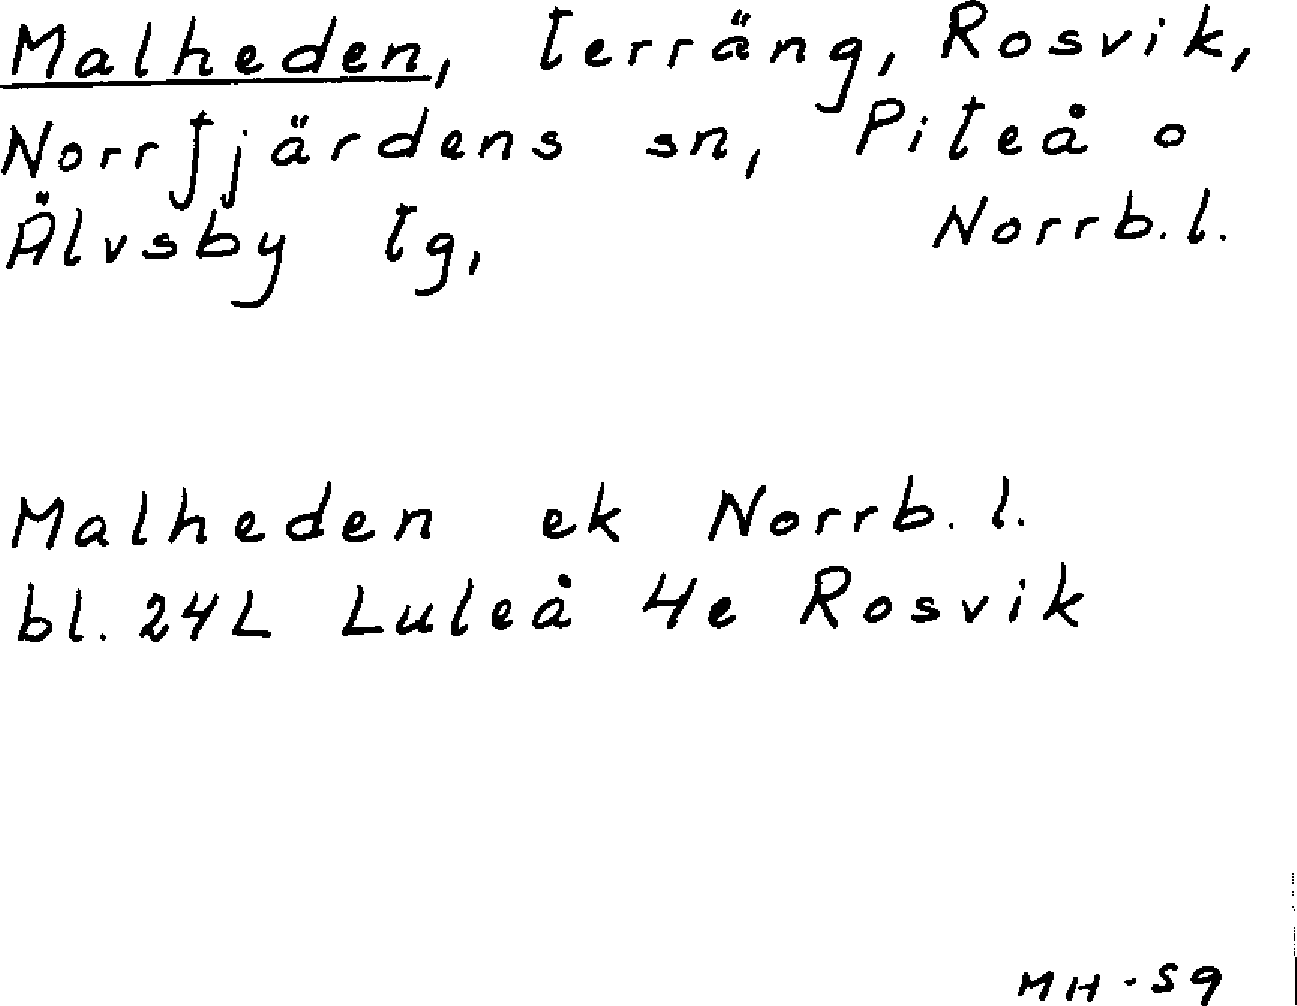 Malheden, terräng, Rosvik,
Norrfjärdens sn, Piteå o
Älvsby tg, Norrb.l.
Malheden ek Norrb. l.
bl. 24L Luleå 4e Rosvik
MH-59